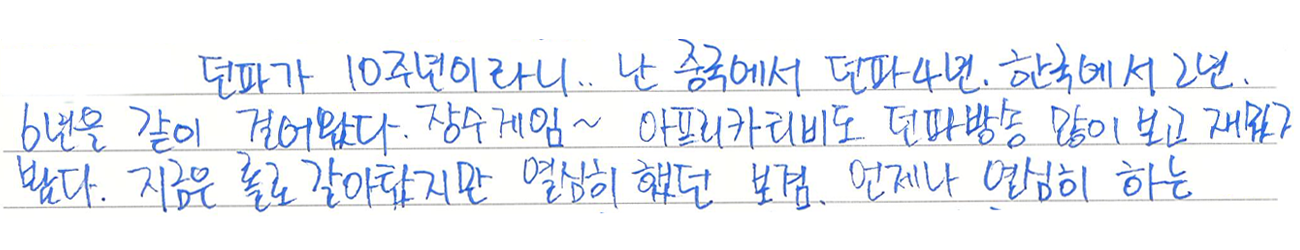 던파가 10주년이라니.. 난 중국에서 던파4년. 한국에서 2년.
6년을 같이 걸어왔다. 장수게임~ 아프리카티비도 던파방송 많이 보고 재밌게
봤다. 지금은 롤로 갈아탔지만 열심히 했던 보겸. 언제나 열심히 하는